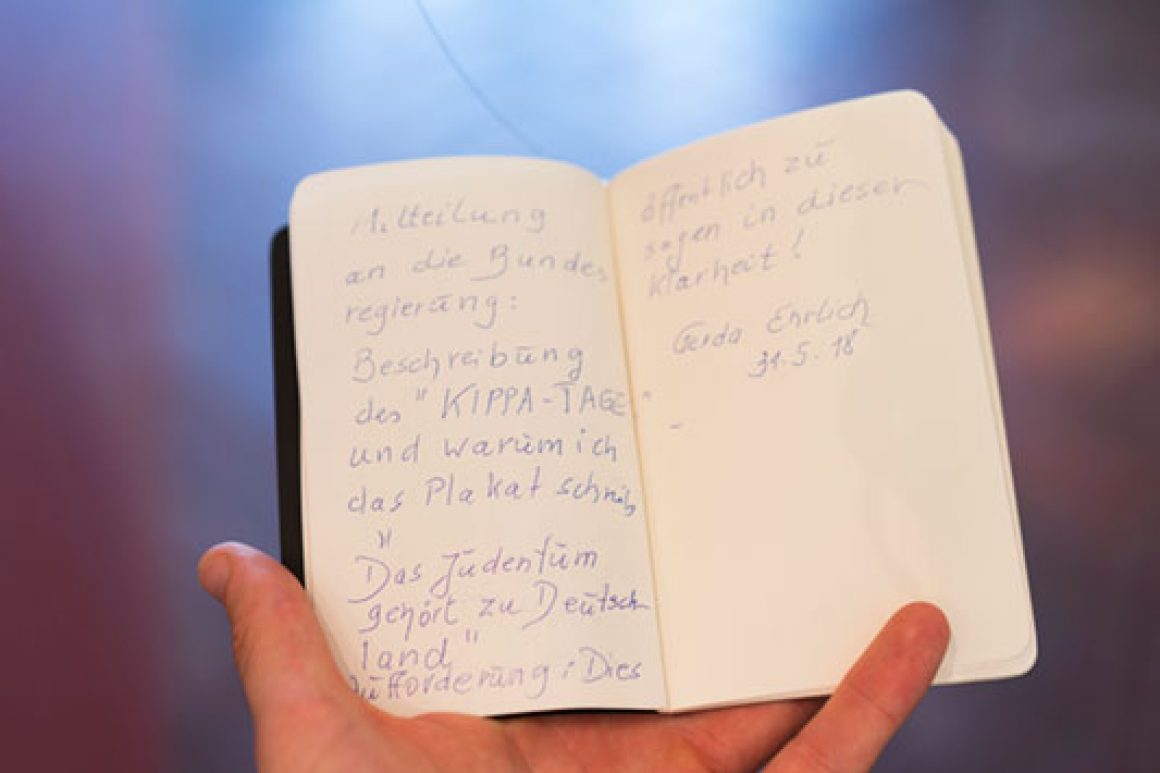 Mitteilung
an die Bundes
regierung:
Beschreibung
des "KIPPA-TAGE"
und warum ich
das Plakat schrieb,
"Das Judentum
gehört zu Deutsch-
land"
Aufforderung: Dies
öffentlich zu
sagen in dieser
Klarheit!
Gerda Ehrlich
31.5.18